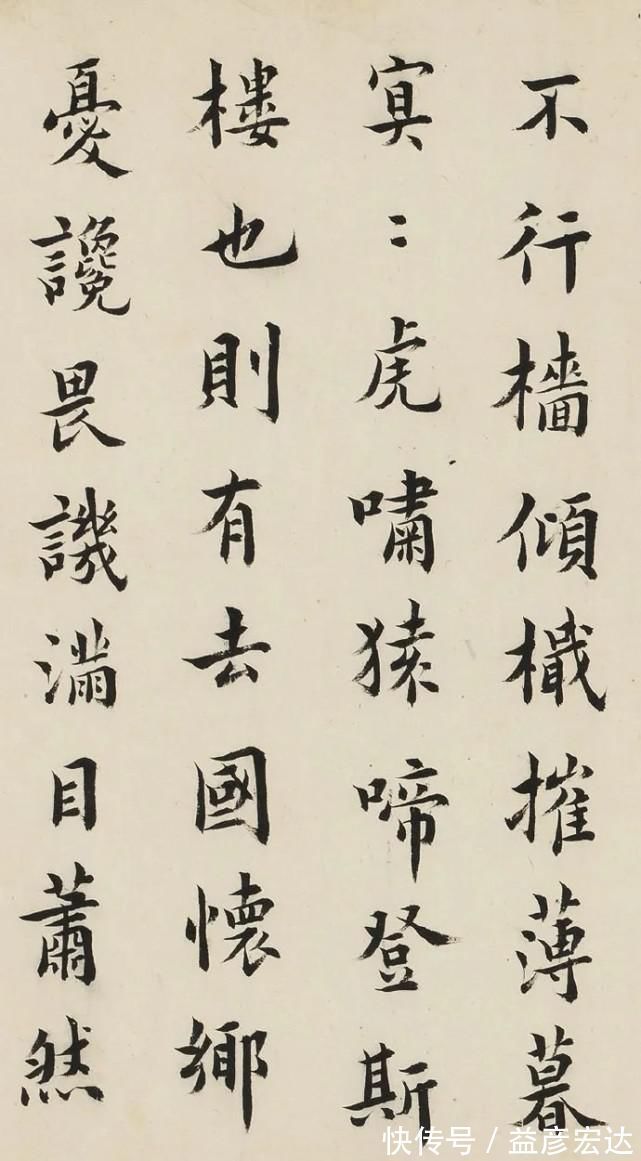 不行檣傾檝摧薄暮
冥〻虎嘯猿啼登斯
樓也則有去國懷鄉
憂讒畏譏滿目蕭然
快传号/益彦宏达